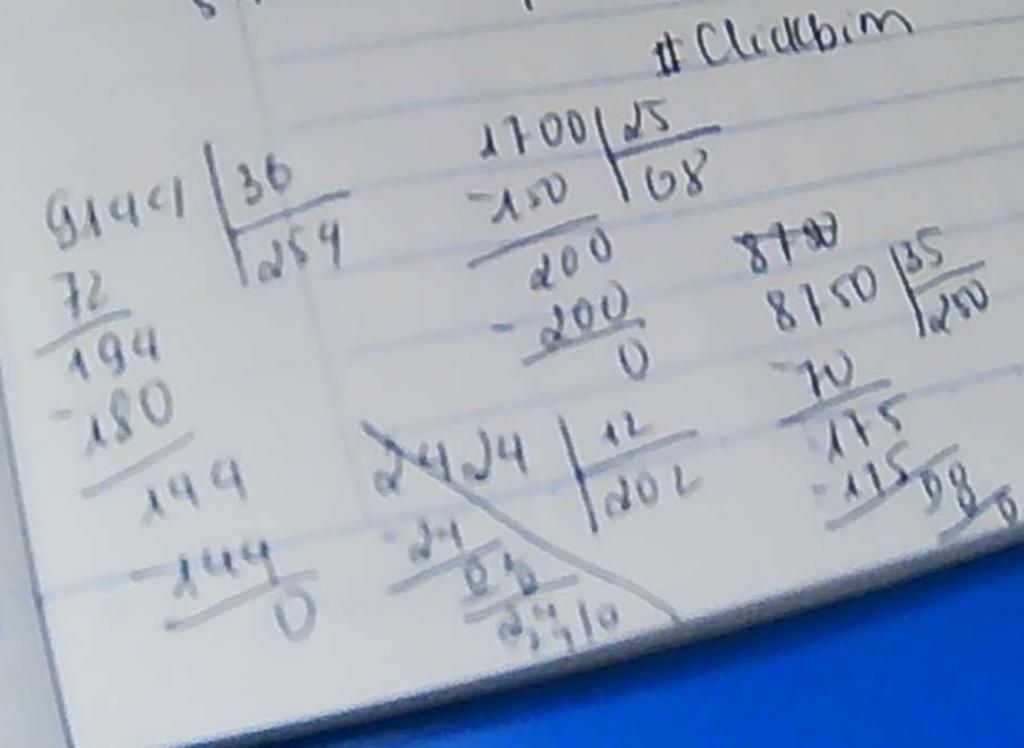 #Clickbim
9144 36
254
72
194
-180
144
-144
0
1700 25
-150 68
200
-200
0
8750 35
250
-70
175
-175
2424 12
202
-24